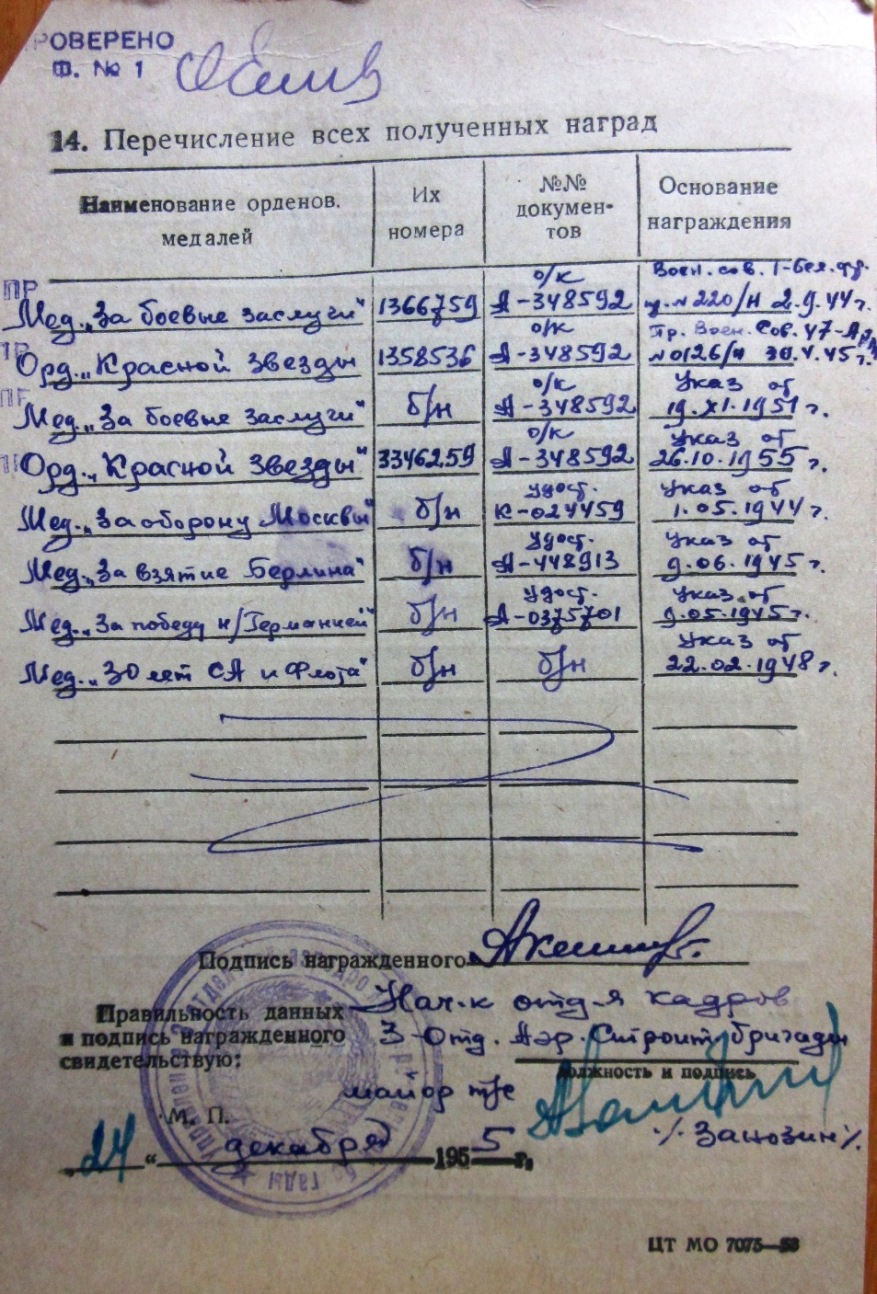 ПРОВЕРЕНО
Ф. № 1
14. Перечисление всех полученных наград
Наименование орденов. медалей
Их номера
№№ докумен-тов
Основание награждения
ПР
Мед. „За боевые заслуги" 1366759 о/к А-348592 Воен. сов. 1-Бел. фр. п. № 220/н 2.9.44 г.
ПР
Орд. „Красной Звезды 1358536 о/к А-348592 Пр. Воен. Сов. 47-Арм №0126/н 30.4.45 г.
ПР
Мед. „За боевые заслуги" б/н о/к А-348592 Указ от 19.XI.1951 г.
Орд. „Красной Звезды" 3346259 о/к А-348592 Указ от 26.10.1955 г.
Мед. „За оборону Москвы" б/н Удост. К-024459 Указ от 1.05.1944 г.
Мед. „За взятие Берлина" б/н Удост. А-448913 Указ от 9.06.1945 г.
Мед. „За победу н/Германией" б/н Удост. А-0375701 Указ от 9.05.1945 г.
Мед. „30 лет СА и Флота" б/н б/н Указ от 22.02.1948 г.
Подпись награжденного
Правильность данных
и подпись награжденного
свидетельствую:
Нач-к отд-я кадров
3 Отд. Аэр. Строит. бригады
должность и подпись
майор т/с
М. П.
/. Занозин /.
„24" декабря 1955 г.
ЦТ МО 7075—53